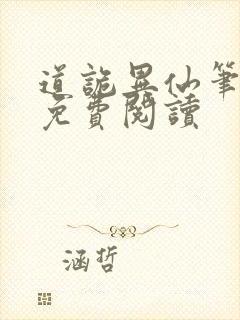 道詭異仙筆
免費閱讀
涵哲